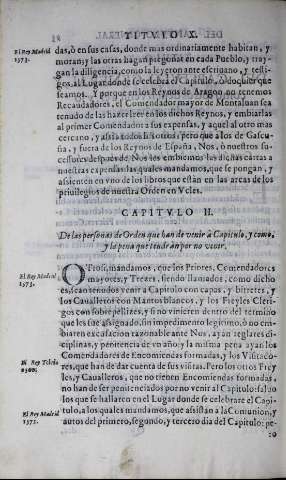 TITVLO X.
El Rey Madrid
1573.
das, ò en sus casas, donde mas ordinariamente habitan, y
moran; y las otras hagan pregonar en cada Pueblo, y tray-
gan la diligencia, como la leyeron ante escriuano, y testi-
gos, al Lugar donde se celebra el Capitulo, ò do quier que
seamos. Y porque en los Reynos de Aragon no tenemos
Recaudadores, el Comendador mayor de Montaluan sea
tenudo de las hazer leer en los dichos Reynos, y embiarlas
al primer Comendador a sus expensas, y aquel al otro mas
cercano, y assi a todos los otros: pero a los de Gascu-
ña, y fuera de los Reynos de España, Nos, ò nuestros su-
cessores despues de Nos les embiemos las dichas cartas a
nuestras expensas: las quales mandamos, que se pongan, y
assienten en vno de los libros que están en las arcas de los
priuilegios de nuestra Orden en Vcles.
CAPITVLO II.
De las personas de Orden que han de venir à Capitulo, y como,
y la pena que tendràn por no venir.
El Rey Madrid
1573.
OTrosi, mandamos, que los Priores, Comendadores
mayores, y Trezes, siendo llamados, como dicho
es, sean tenudos venir a Capitulo con capas, y birretes, y
los Caualleros con Mantos blancos, y los Freyles Cleri-
gos con sobrepellizes, y si no vinieren dentro del termino
que les fue assignado, sin impedimento legitimo, ò no em-
biaren excusacion razonable ante Nos, ayan seglares di-
ciplinas, y penitencia de vn año; y la misma pena ayan los
Comendadores de Encomiendas formadas, y los Visitado-
res, que han de dar cuenta de sus visitas. Pero los otros Frey-
les, y Caualleros, que no tienen Encomiendas formadas,
no han de ser penitenciados por no venir al Capitulo: saluo
los que se hallaren en el Lugar donde se celebrare el Capi-
tulo, a los quales mandamos, que assistan a la Comunion, y
autos del primero, segundo, y tercero dia del Capitulo: pe-
El Rey Toledo
1560.
El Rey Madrid
1573.
ro